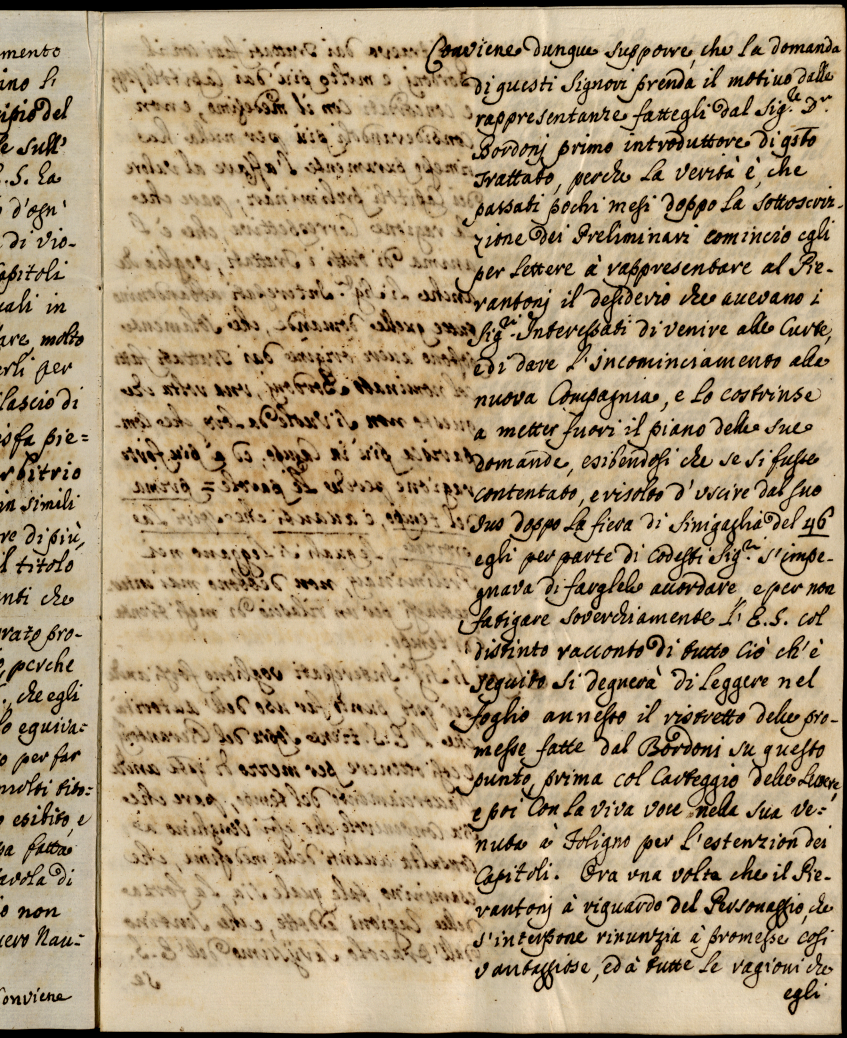 mento
ino li
cipio del
e sull'
E.S. La
o d'ogn'
di vio-
Capitoli
uali in
are molto
erli per
ilascio di
isfa pie=
rbitrio
in simili
re di più,
il titolo
nti che
rato pro-
o, perche
, che egli
lo equiva=
o per far
molti tito=
o esibito, e
sa fatta
avola di
io non
uero Nau=
Conviene
Conviene dunque supporre, che la domanda
di questi Signori prenda il motivo dalle
rappresentanze fattegli dal Sig.re D.r
Bordonj primo introduttore di qsto
Trattato, perche la verità è, che
passati pochi mesi doppo la sottoscriz-
zione dei Preliminari cominciò egli
per lettere à rappresentare al Pie-
rantonj il desiderio che auevano i
Sig.ri Interessati di venire alle Curte,
e di dare l'incominciamento alla
nuova Compagnia, e lo costrinse
a metter fuori il piano delle sue
domande, esibendosi che se si fusse
contentato, e risolto d'uscire dal suo
Jus doppo la fiera di Sinigaglia del 46
egli per parte di codesti Sig.ri s'impe-
gnava di fargliele accordare, e per non
fatigare soverchiamente l'E.S. col
distinto racconto di tutto ciò ch'è
seguito si degnerà di leggere nel
foglio annesso il ristretto delle pro-
messe fatte dal Bordoni su questo
punto, prima col Carteggio delle Lettere,
e poi con la viva voce nella sua ve=
nuta à Foligno per l'estenzion dei
Capitoli. Ora una volta che il Pie-
rantonj à riguardo del Personaggio, che
s'interpone rinunzia à promesse cosi
vantaggiose, ed à tutte le ragioni che
egli